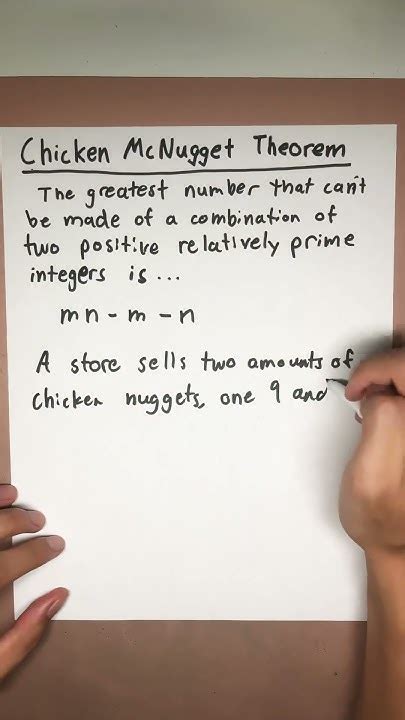 Chicken McNugget Theorem
The greatest number that can't
be made of a combination of
two positive relatively prime
integers is...
mn - m - n
A store sells two amounts of
chicken nuggets, one 9 and